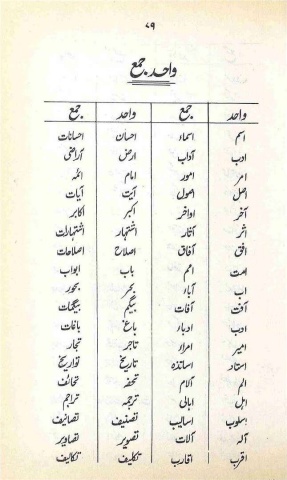 ۷۹
واحد جمع
واحد جمع واحد جمع
اسم اسماء احسان احسانات
ادب آداب ارض آراضی
امر امور امام ائمہ
اصل اصول آیت آیات
آخر اواخر اکبر اکابر
اثر آثار اشتہار اشتہارات
افق آفاق اصلاح اصلاحات
امت امم باب ابواب
اب آباء بحر بحور
آفت آفات بیگم بیگمات
ادب ادباء باغ باغات
امیر امراء تاجر تجار
استاد اساتذہ تاریخ تواریخ
الم آلام تحفہ تحائف
اہل اہالی ترجمہ تراجم
اسلوب اسالیب تصنیف تصانیف
آلہ آلات تصویر تصاویر
اقرب اقارب تکلیف تکالیف